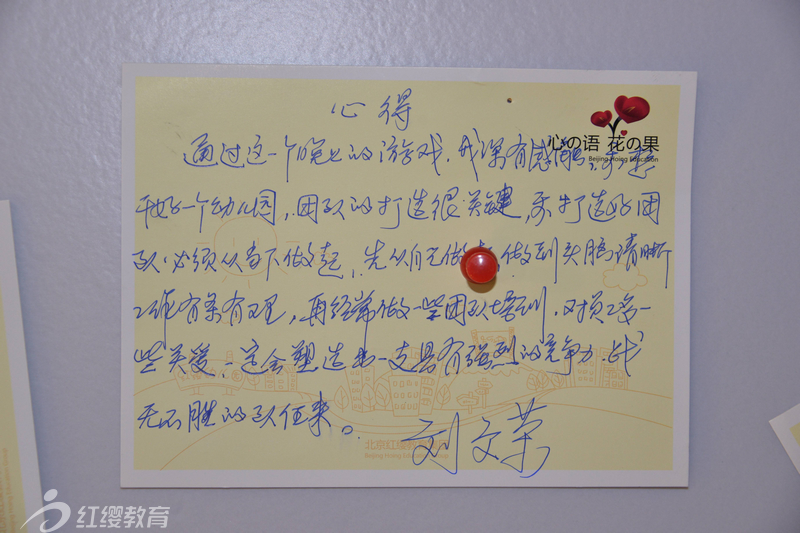 心の语 花の果
Beijing Hoing Education
心得
通过这一个晚上的游戏,我深有感触,要想
干好一个幼儿园,团队的打造很关键,要打造好团
队必须从当下做起,先从自己做起,做到头脑清晰
工作有条有理,再经常做一些团队培训,对员工多一
些关爱,这会塑造出一支具有强烈的竞争力、战
无不胜的队伍来。
北京红缨教育
刘文荣
红缨教育